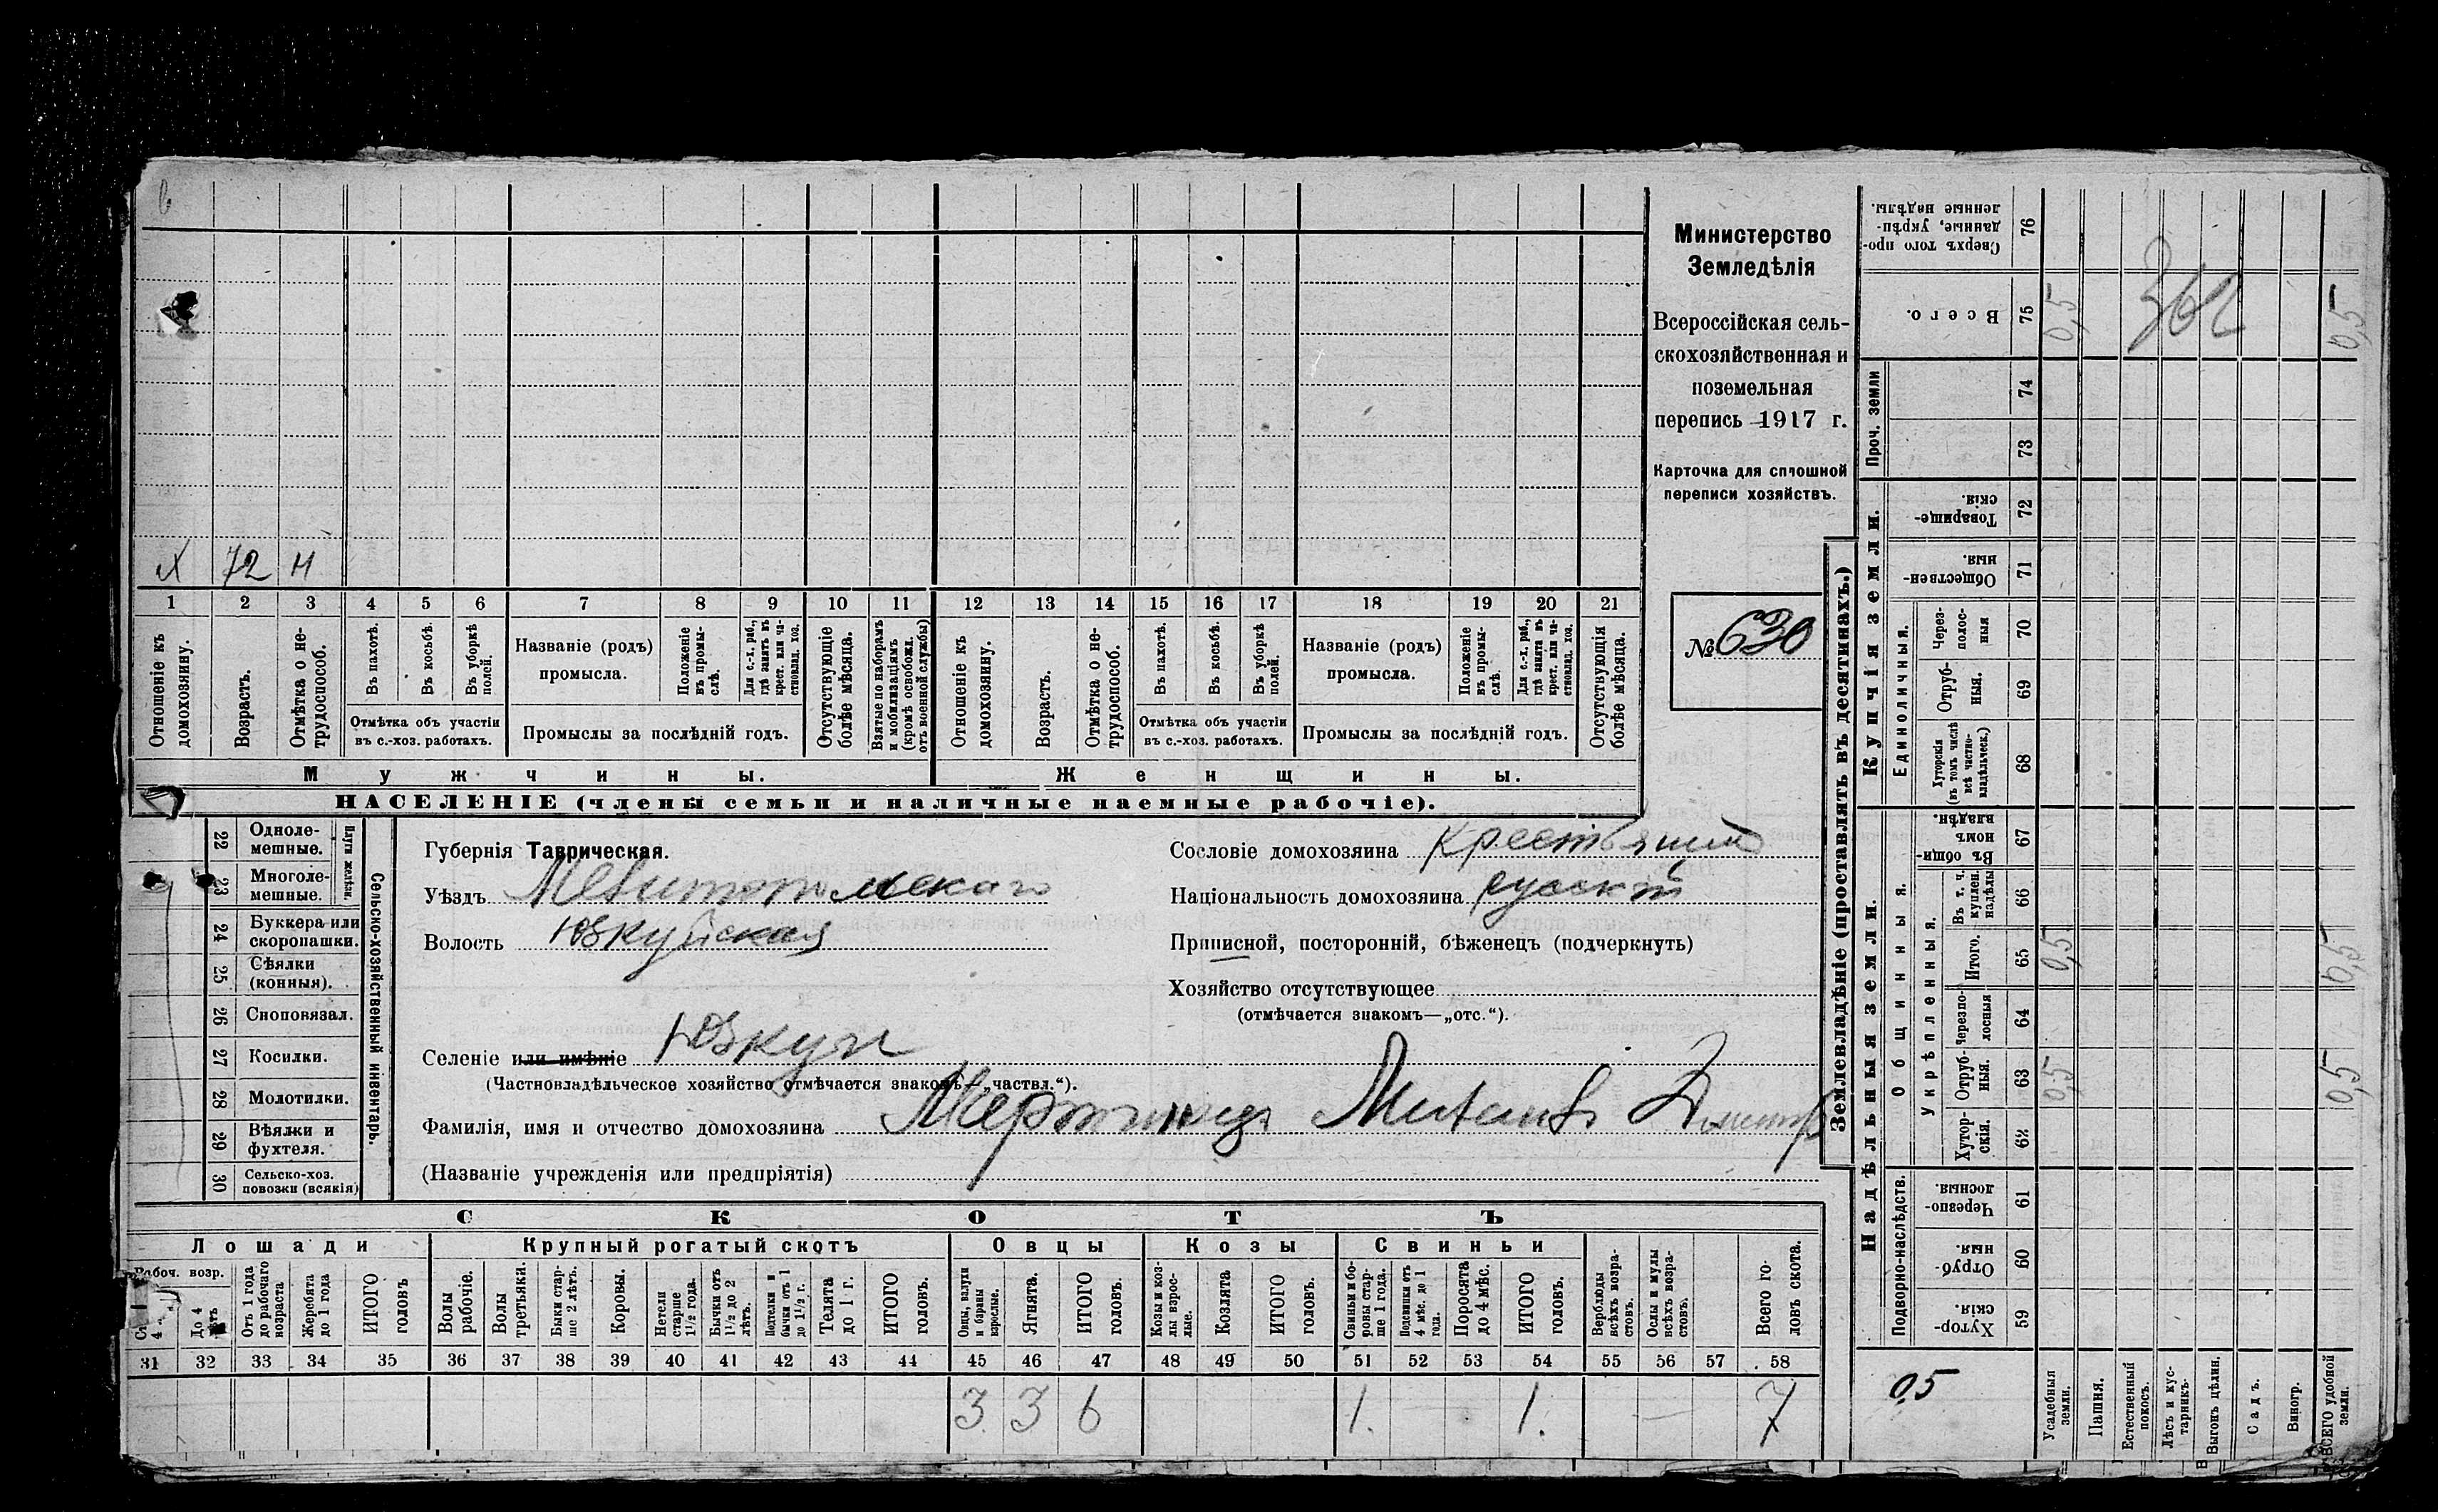 х 72 н
1 2 3 4 5 6 7 8 9 10 11 12 13 14 15 16 17 18 19 20 21
Отношеніе къ домохозяину.
Возрастъ.
Отмѣтка о не-
трудоспособ.
Въ пахотѣ.
Въ косьбѣ.
Въ уборкѣ
полей.
Отмѣтка объ участіи
въ с.-хоз. работахъ.
Названіе (родъ)
промысла.
Положеніе
въ промы-
слѣ.
Для с.-х. раб.,
гдѣ занятъ въ
крест. или ча-
стновлад. хоз.
Промыслы за послѣдній годъ.
Отсутствующіе
болѣе мѣсяца.
Взятые по наборамъ
и мобилизаціямъ
(кромѣ освобожд.
отъ военной службы)
Отношеніе къ
домохозяину.
Возрастъ.
Отмѣтка о не-
трудоспособ.
Въ пахотѣ.
Въ косьбѣ.
Въ уборкѣ
полей.
Отмѣтка объ участіи
въ с.-хоз. работахъ.
Названіе (родъ)
промысла.
Положеніе
въ промы-
слѣ.
Для с.-х. раб.,
гдѣ занята въ
крест. или ча-
стновлад. хоз.
Промыслы за послѣдній годъ.
Отсутствующія
болѣе мѣсяца.
Мужчины.
Женщины.
НАСЕЛЕНІЕ (члены семьи и наличные наемные рабочіе).
Министерство
Земледѣлія
Всероссійская сель-
скохозяйственная и
поземельная
перепись 1917 г.
Карточка для сплошной
переписи хозяйствъ.
№ 630
22 Одноле-
мешные.
23 Многоле-
мешные.
Плуги желѣзн.
24 Буккера или
скоропашки.
25 Сѣялки
(конныя).
26 Сноповязал.
27 Косилки.
28 Молотилки.
29 Вѣялки и
фухтеля.
30 Сельско-хоз.
повозки (всякія)
Сельско-хозяйственный инвентарь.
Губернія Таврическая.
Уѣздъ Мелитопольскаго
Волость Юзкуйская
Селеніе или имѣніе Юзкуи
(Частновладѣльческое хозяйство отмѣчается знакомъ—„частвл.“).
Сословіе домохозяина крестьянинъ
Національность домохозяина русскій
Приписной, посторонній, бѣженецъ (подчеркнуть)
Хозяйство отсутствующее
(отмѣчается знакомъ—„отс.“).
Фамилія, имя и отчество домохозяина
(Названіе учрежденія или предпріятія)
СКОТЪ
Лошади Крупный рогатый скотъ Овцы Козы Свиньи
Рабоч. возр.
До 4
лѣтъ
Отъ 1 года
до рабочаго
возраста
Жеребята
до 1 года
ИТОГО
головъ
Волы
рабочіе.
Волы
третьяки.
Быки стар-
ше 2 лѣтъ.
Коровы.
Нетели
старше
1½ года.
Бычки отъ
1½ до 2
лѣтъ.
Подтелки и
бычки отъ 1
до 1½ г.
Телята
до 1 г.
ИТОГО
головъ.
Овцы, валухи
и бараны
взрослые.
Ягнята.
ИТОГО
головъ.
Козы и коз-
лы взрос-
лые.
Козлята
ИТОГО
головъ.
Свиньи и бо-
ровы стар-
ше 1 года.
Подсвинки отъ
4 мѣс. до 1
года.
Поросята
до 4 мѣс.
ИТОГО
головъ.
Верблюды
всѣхъ возра-
стовъ.
Ослы и мулы
всѣхъ возра-
стовъ.
Всего го-
ловъ скота.
31 32 33 34 35 36 37 38 39 40 41 42 43 44 45 46 47 48 49 50 51 52 53 54 55 56 57 58
3 3 6 1. 1. 7
Землевладѣніе (проставлять въ десятинахъ.)
Надѣльныя земли.
Купчія земли.
Проч. земли
Подворно-наслѣдств.
Общинныя.
Укрѣпленныя.
Единоличныя.
Сверхъ того про-
данные, укрѣп-
ленные надѣлы.
76
Всего.
75 0,5 0,5
74
73
Товарище-
скія.
72
Обществен-
ныя.
71
Через-
полос-
ныя
70
Отруб-
ныя.
69
Хуторскія
(въ томъ числѣ
всѣ частно-
владѣльческ.)
68
Въ общи-
номъ
владѣн.
67
Въ т. ч.
куплен.
надѣлы
66
Итого.
65 0,5 0,5
Черезпо-
лосныя
64
Отруб-
ныя.
63 0,5 0,5
Хутор-
скія.
62
Черезпо-
лосныя.
61
Отруб-
ныя.
60
Хутор-
скія.
59
0,5
Усадебныя
земли.
Пашня.
Естественный
покосъ.
Лѣсъ и кус-
тарникъ.
Выгонъ цѣлин.
Садъ.
Виногр.
ВСЕГО удобной
земли.